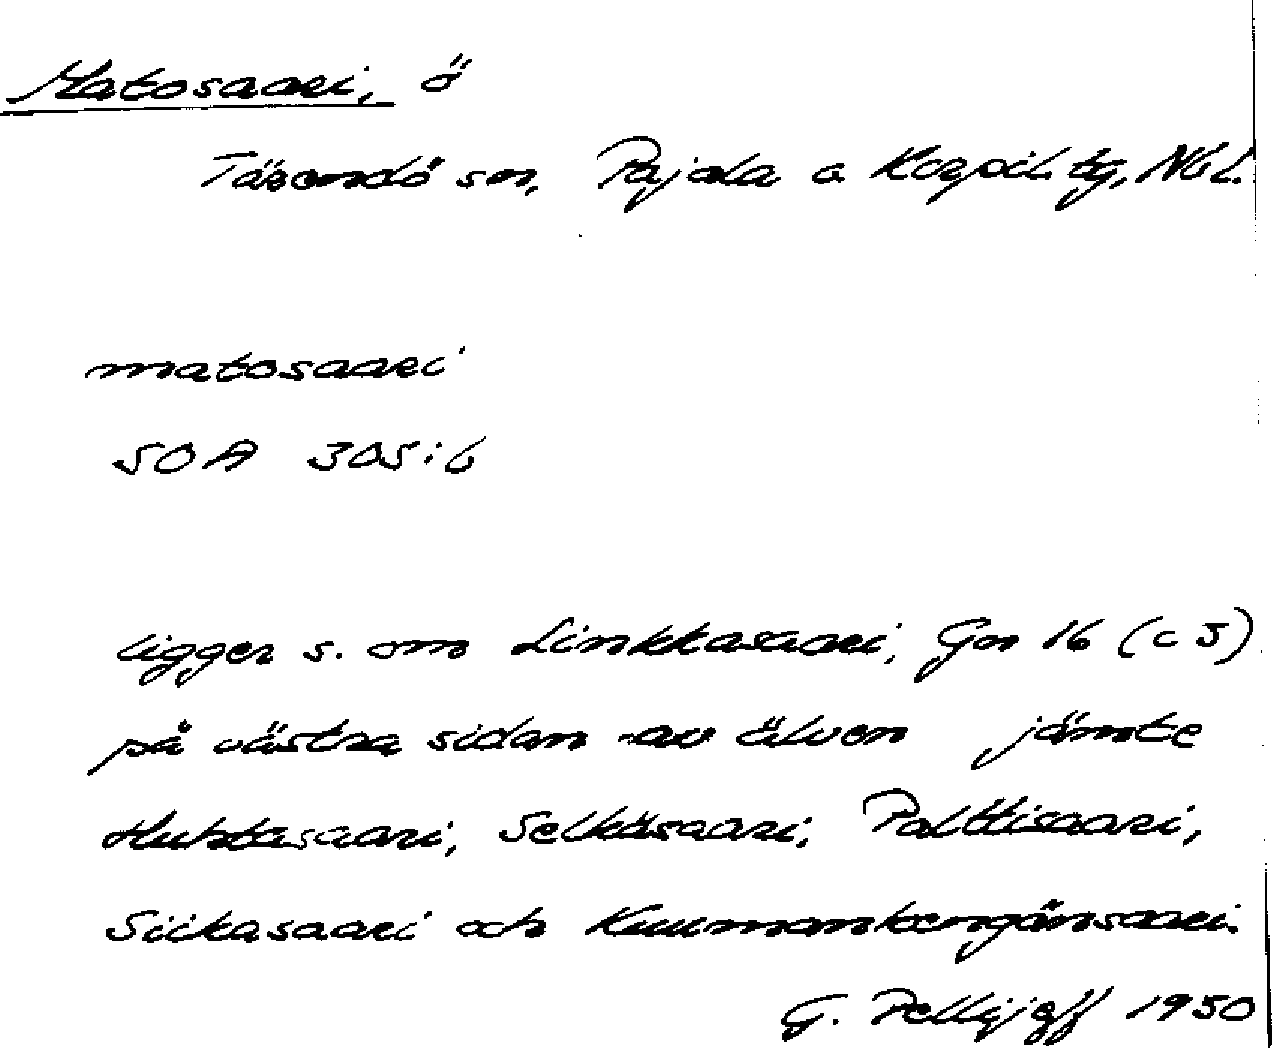 Matosaari, ö
Tärendö sn, Pajala o Korpil. tg, Nbl.
matosaari
SOA 305:6
ligger s. om Linkkasaari, Gm 16 (c 5)
på västra sidan av älven jämte
Huhtasaari, Selkäsaari, Polttisaari,
Siikasaari och Kuumankengänsaari.
G. Pellijeff 1950